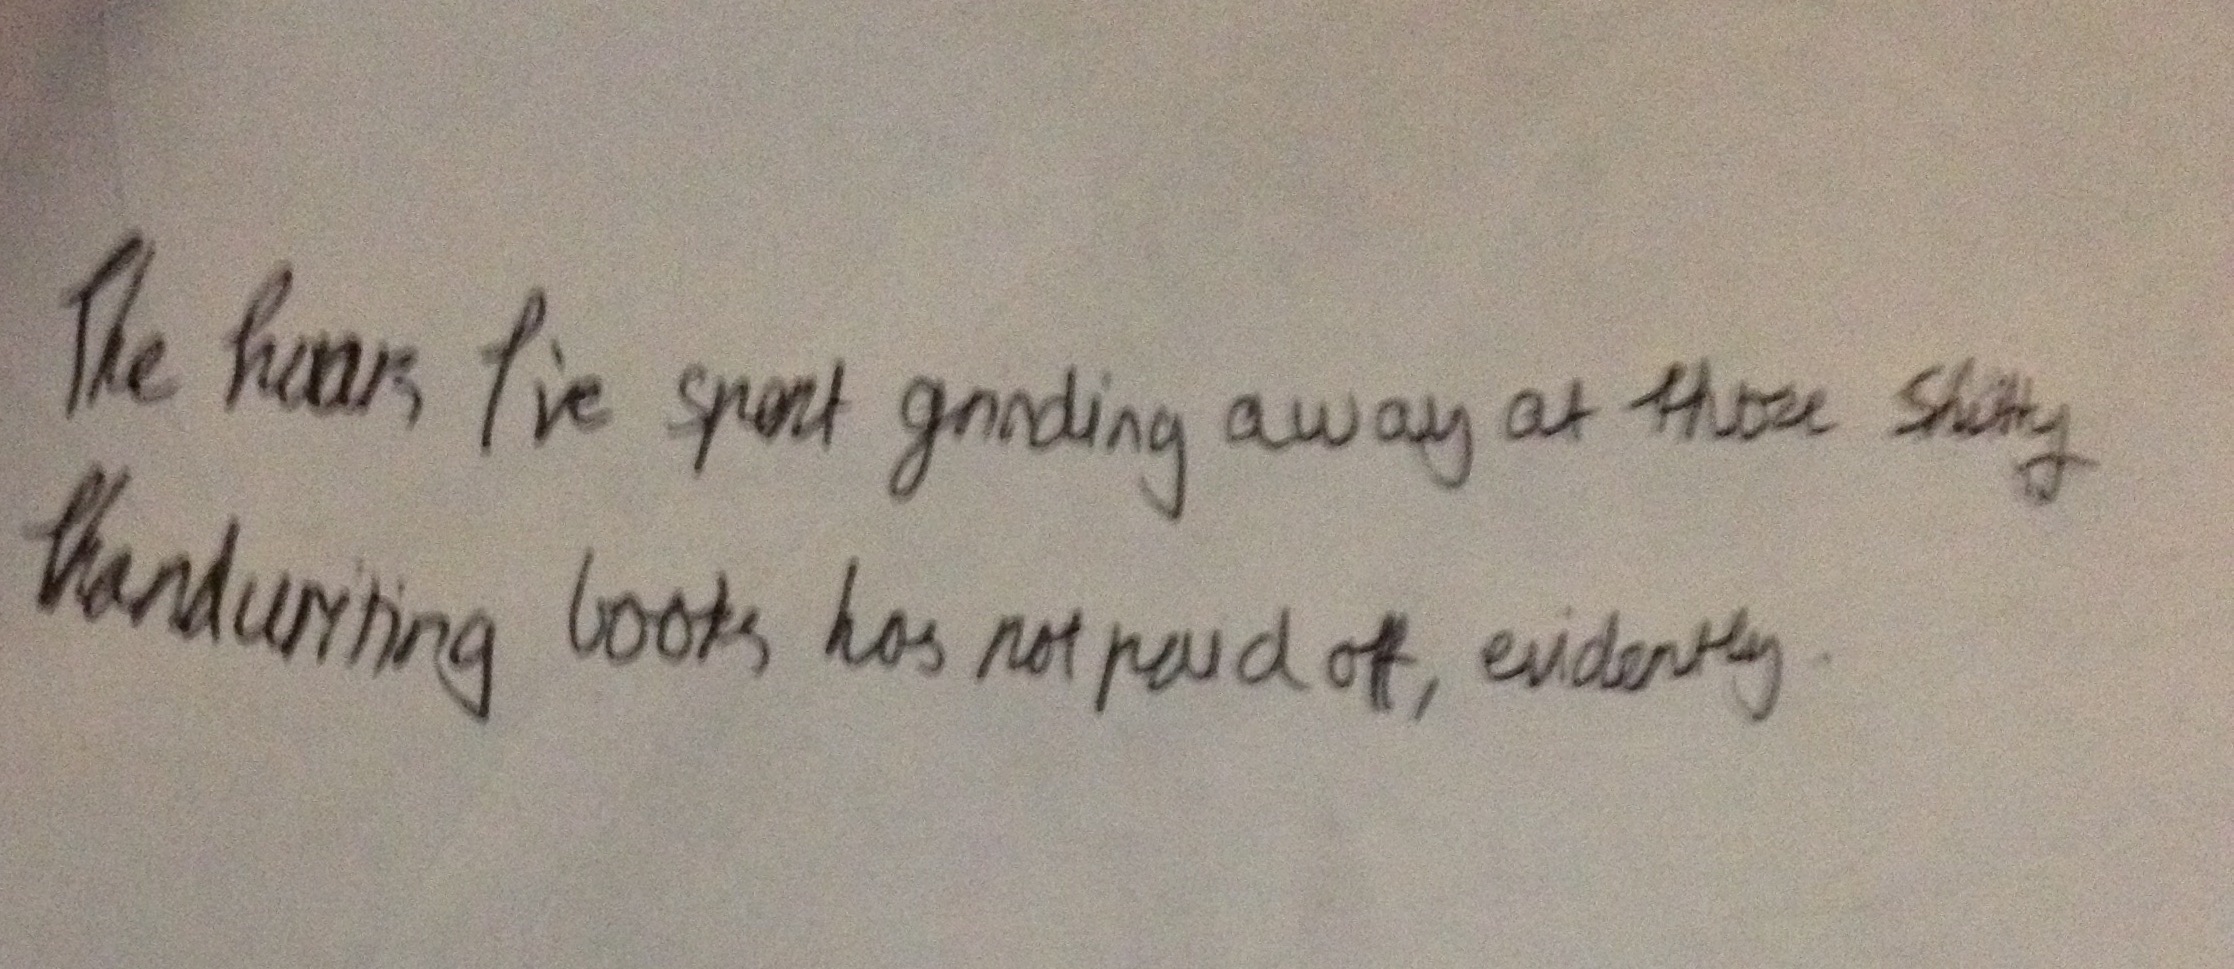 The hours I've spent grinding away at those shitty
handwriting books has not paid off, evidently.